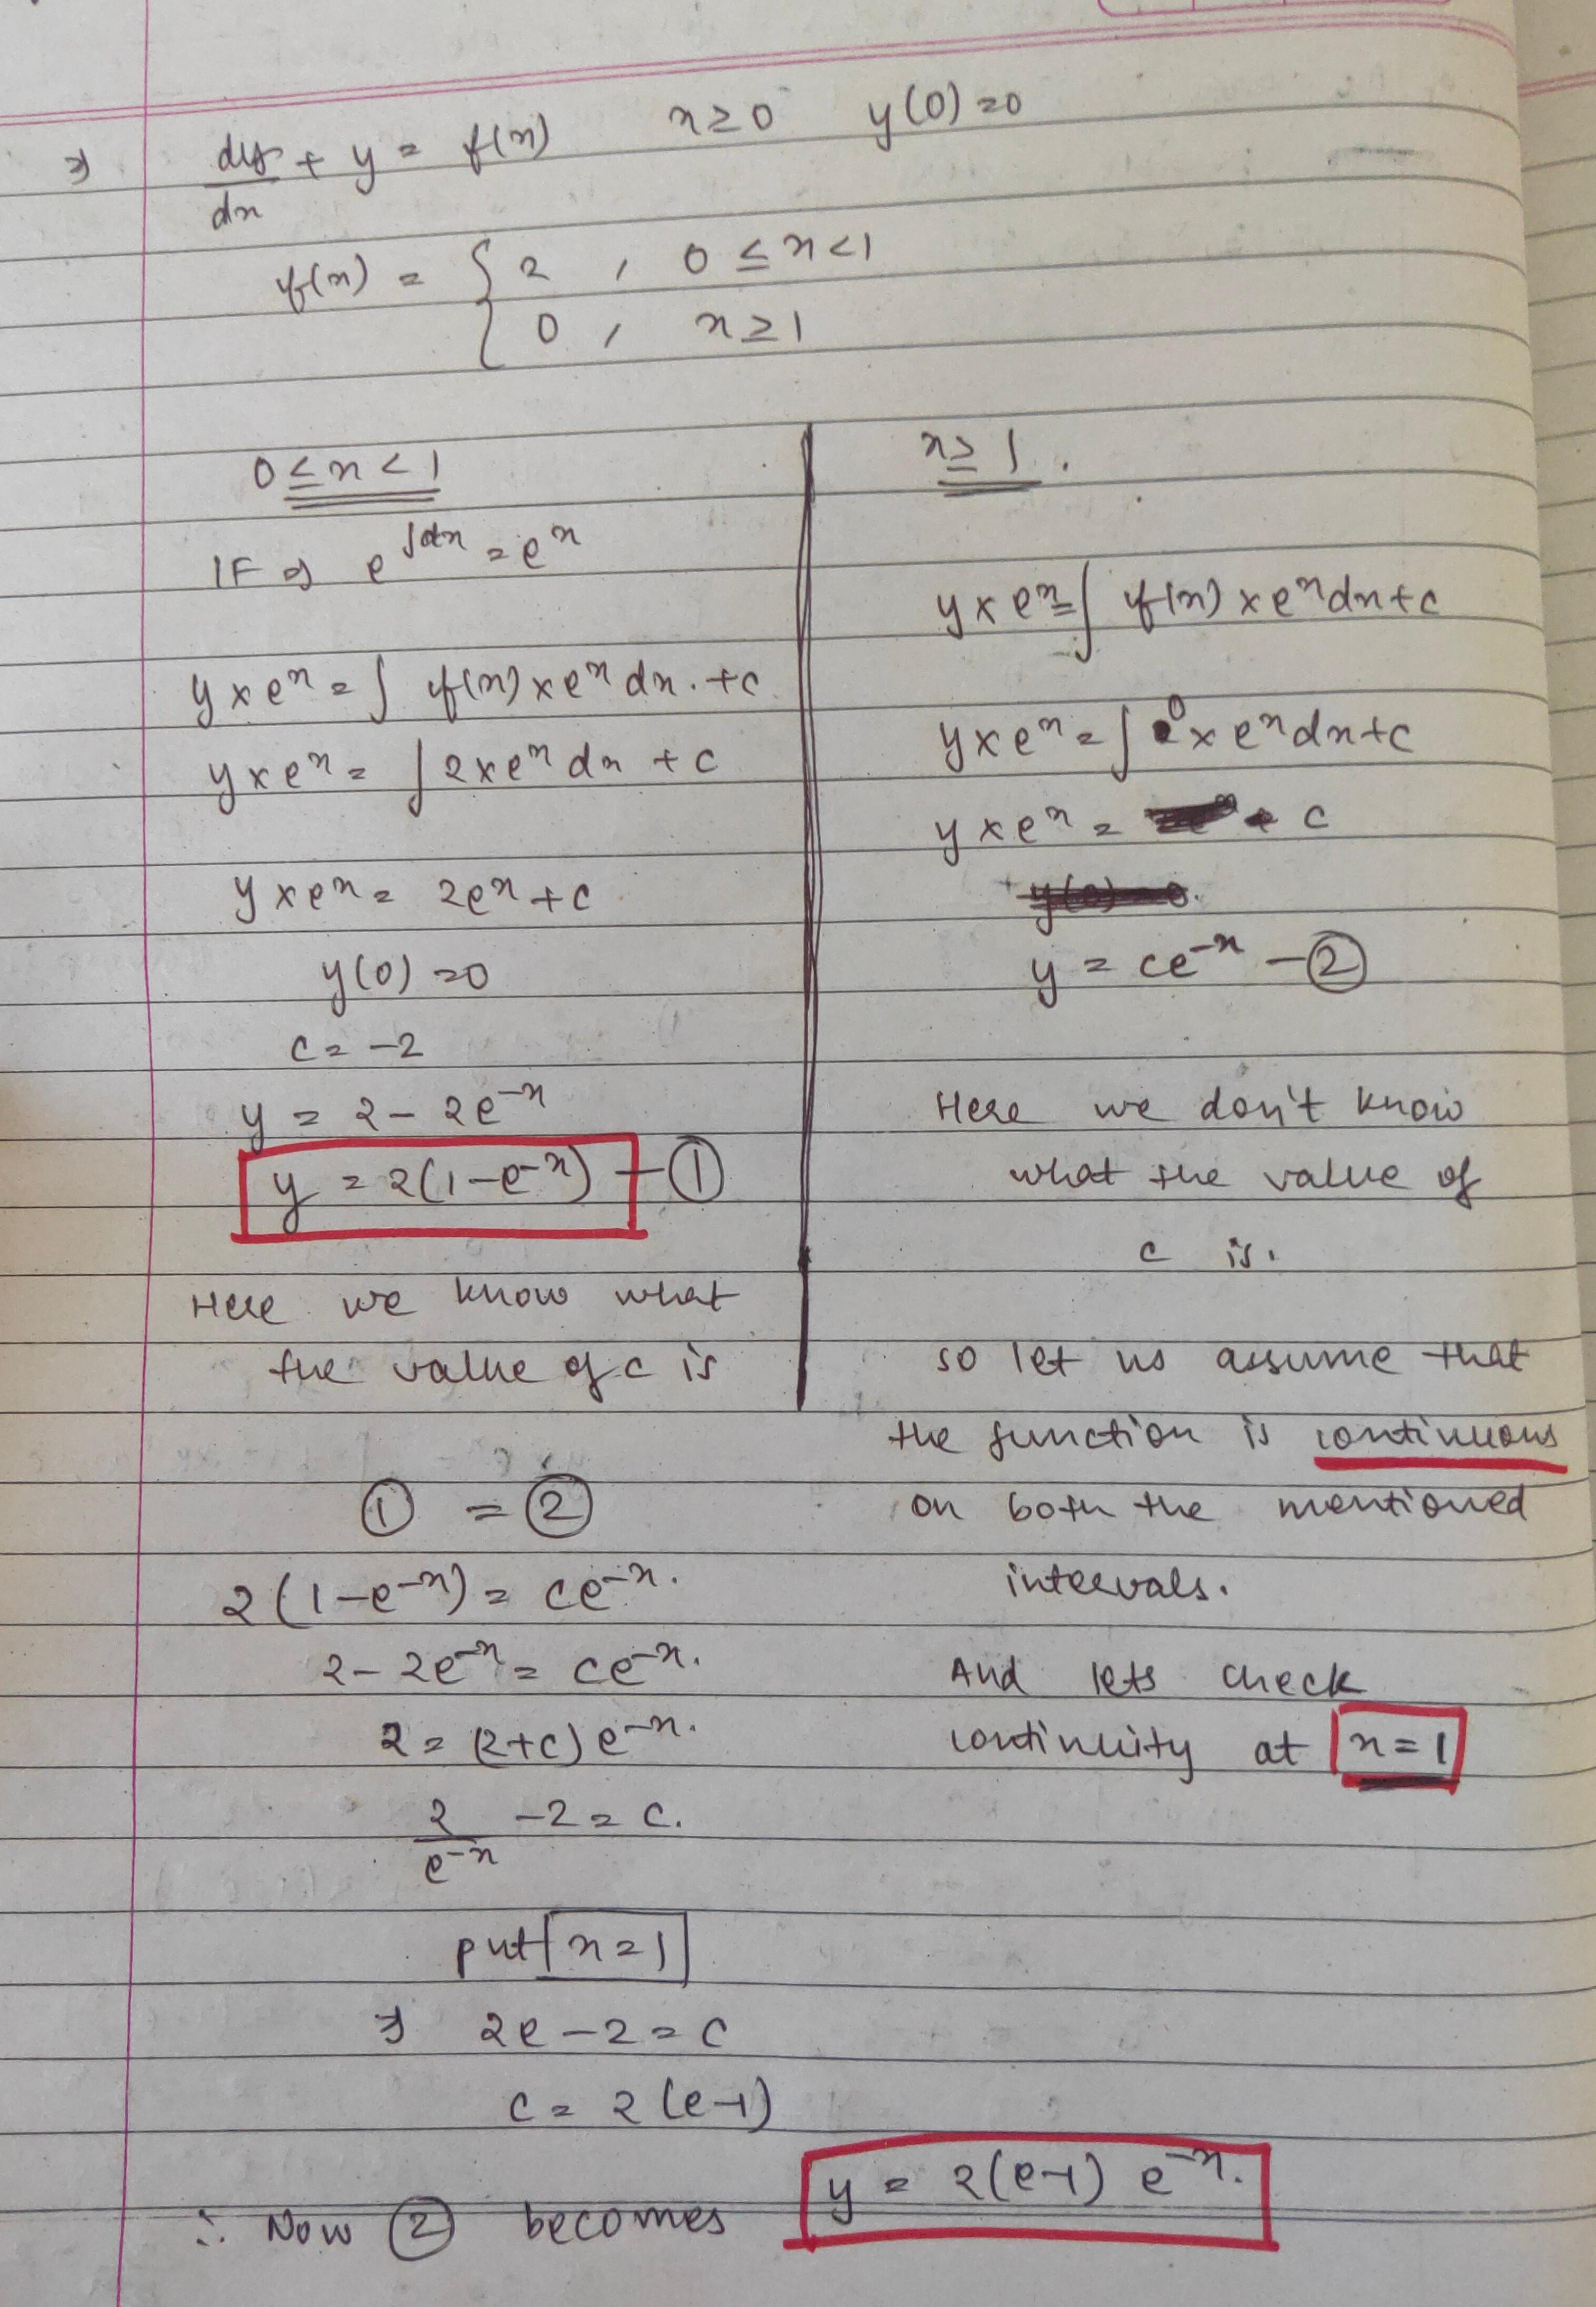 ⇒ dy/dx + y = f(x) x ≥ 0 y(0) = 0
f(x) = { 2 , 0 ≤ x < 1
0 , x ≥ 1
0 ≤ x < 1
IF ⇒ e^∫dx = e^x
y × e^x = ∫ f(x) × e^x dx. + c
y × e^x = ∫ 2 × e^x dx + c
y × e^x = 2e^x + c
y(0) = 0
c = -2
y = 2 - 2e^-x
y = 2(1 - e^-x) - ①
Here we know what
the value of c is
x ≥ 1 .
y × e^x = ∫ f(x) × e^x dx + c
y × e^x = ∫ 0 × e^x dx + c
y × e^x = c
y = ce^-x - ②
Here we don't know
what the value of
c is.
so let us assume that
the function is continuous
on both the mentioned
intervals.
And lets check
continuity at x = 1
① = ②
2(1 - e^-x) = ce^-x.
2 - 2e^-x = ce^-x.
2 = (2+c) e^-x.
2/e^-x - 2 = c.
put x = 1
⇒ 2e - 2 = c
c = 2(e-1)
∴ Now ② becomes y = 2(e-1) e^-x.